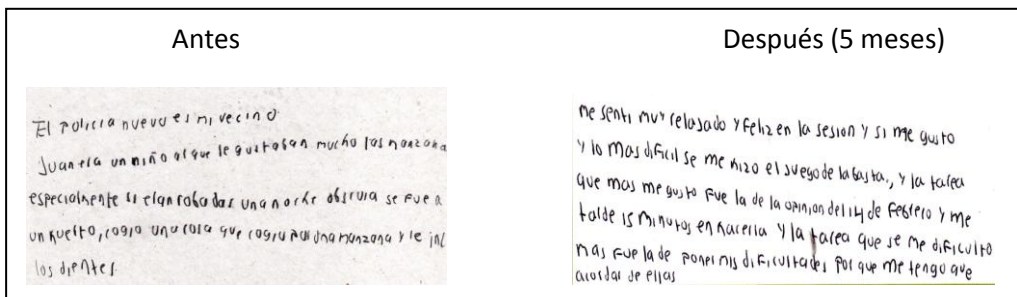 Antes
El policia nuevo es mi vecino
Juan era un niño al que le gustaban mucho las manzana
especialmente si elan robadas una noche obscura se fue a
un huerto, cogio una cosa que cogio por una manzana y le inc
los dientes
Después (5 meses)
me senti muy relajado y feliz en la sesion y si me gusto
y lo mas dificil se me hizo el juego de la basta., y la tarea
que mas me gusto fue la de la opinion del 14 de Febrero y me
talde 15 minutos en hacerla y la tarea que se me dificulto
mas fue la de poner mis dificultades por que me tengo que
acordar de ellas